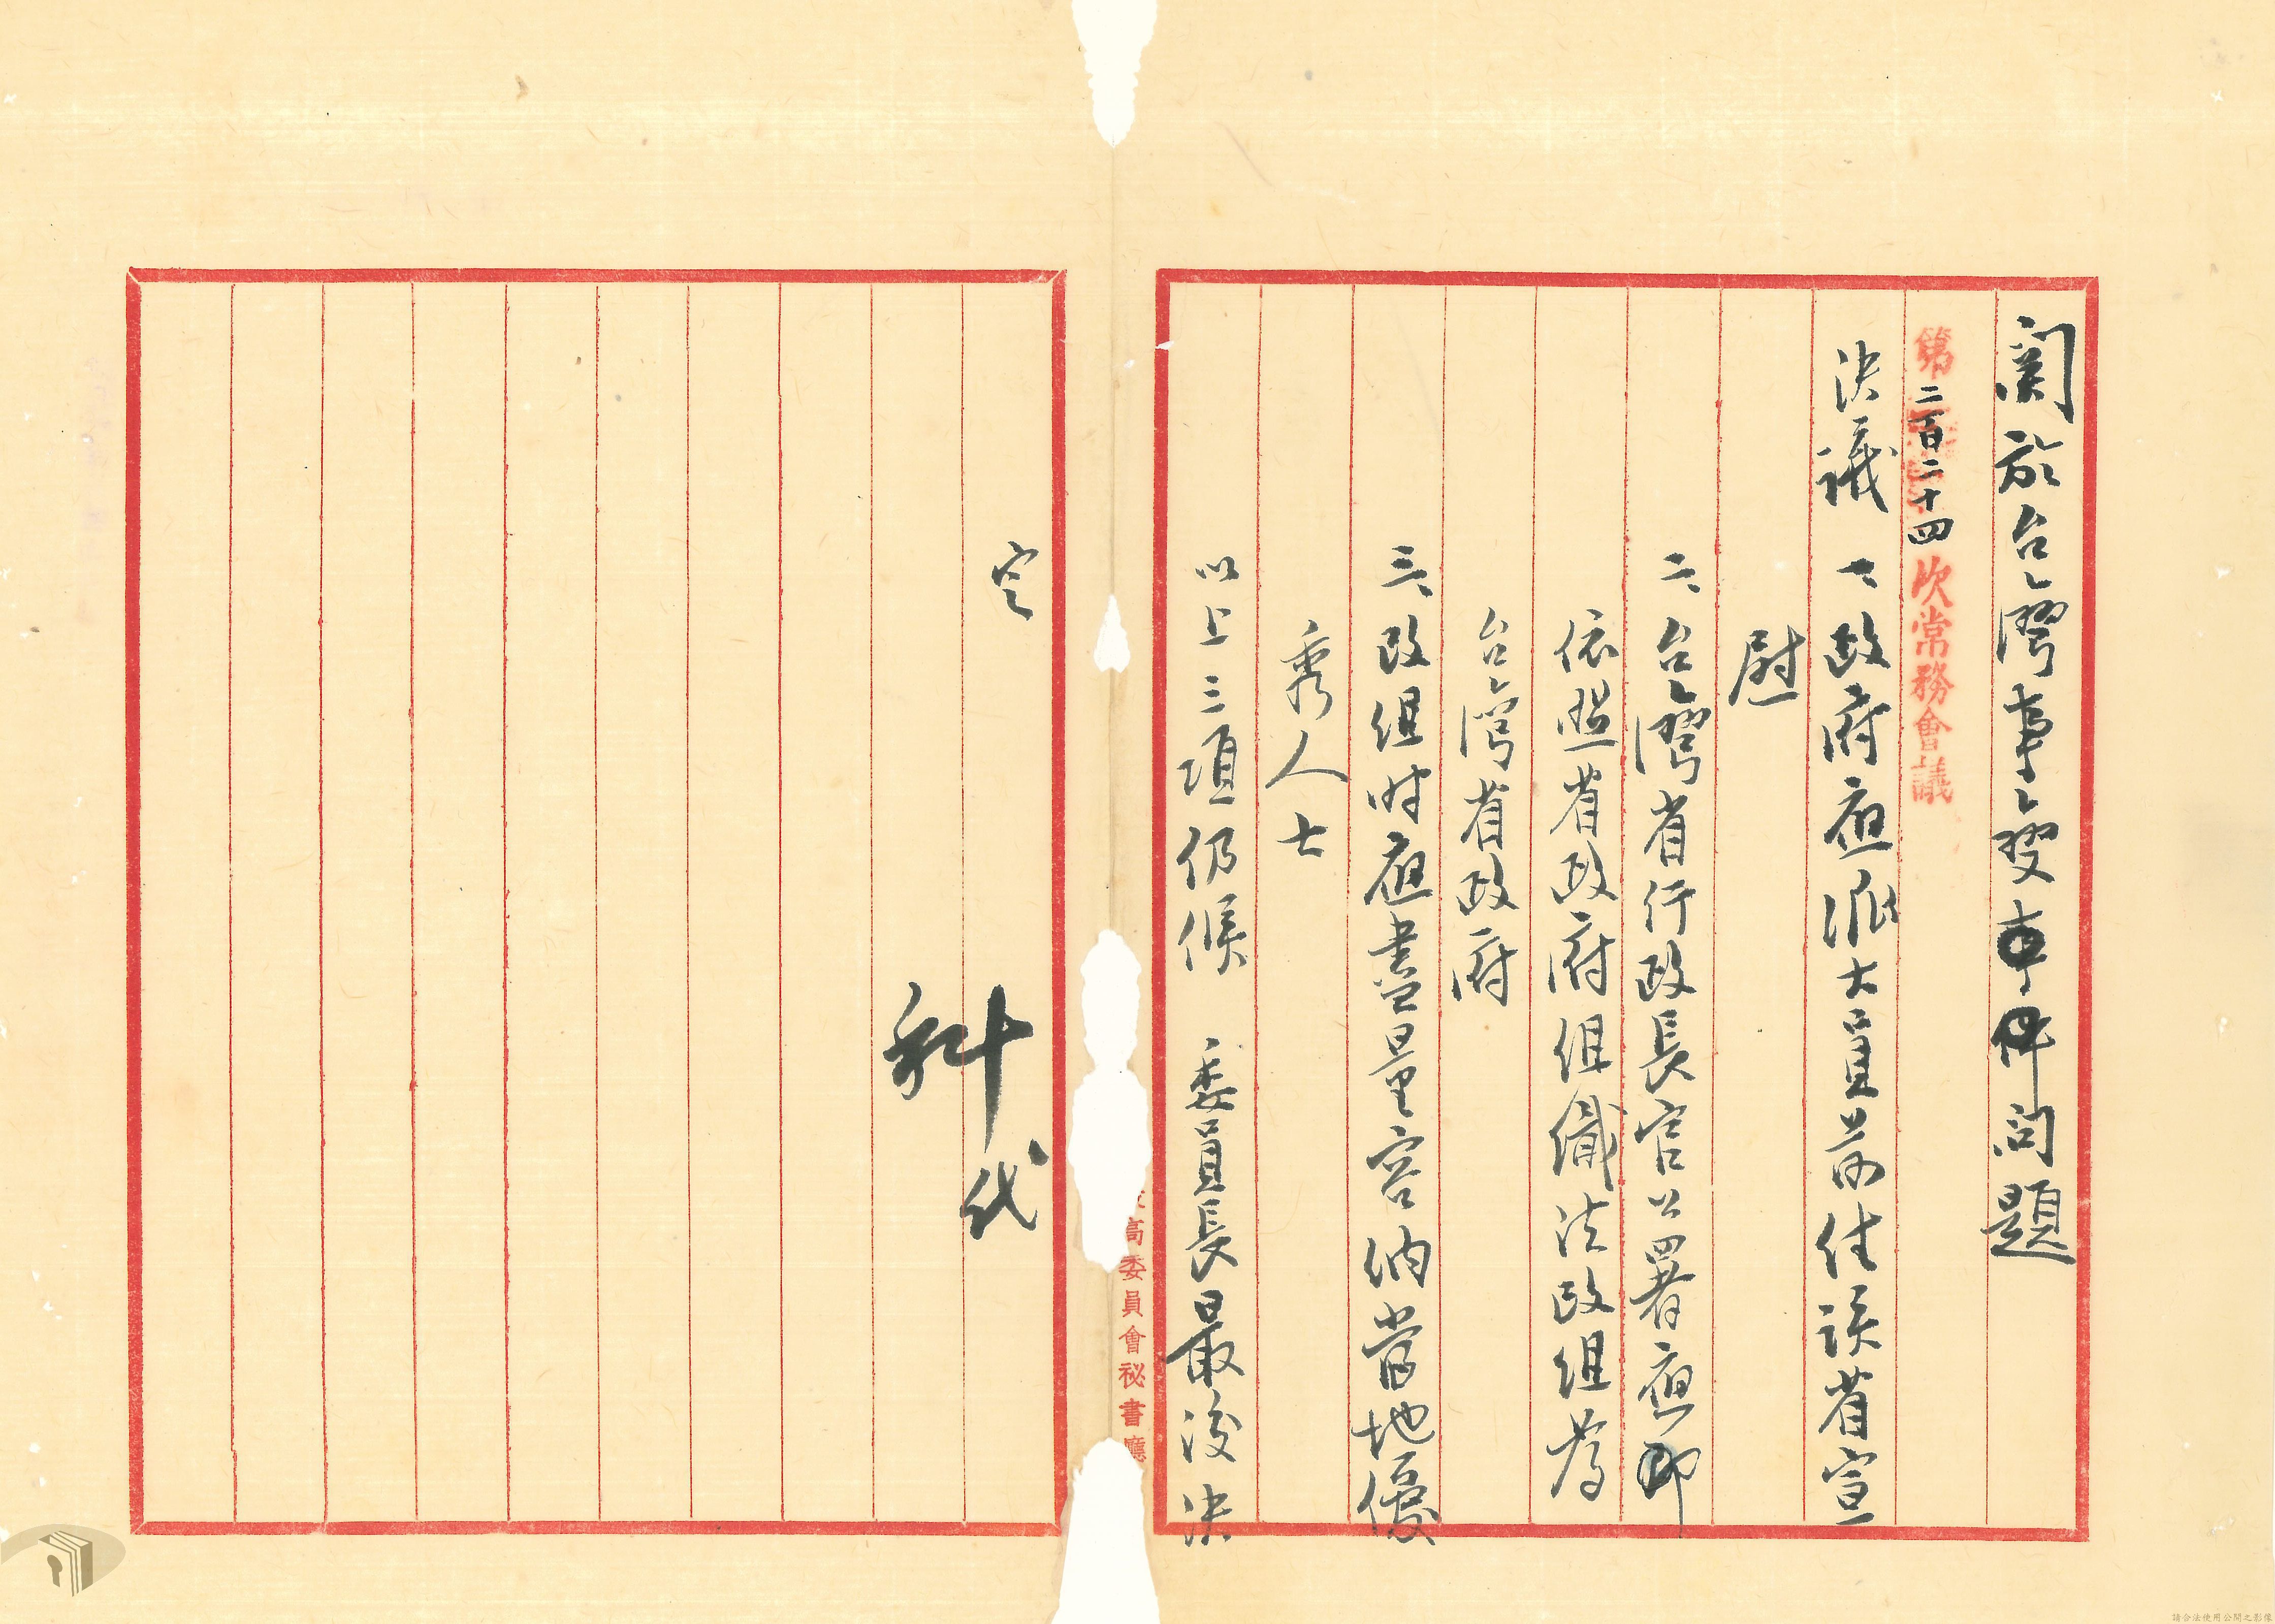 關於台灣事變事件問題
第二百二十四次常務會議
決議 一、政府應派大員前往該省宣
慰
二、台灣省行政長官公署應即
依照省政府組織法改組為
台灣省政府
三、改組時應盡量容納當地優
秀人士
以上三項仍候 委員長最後決
高委員會秘書廳
定
科代
請合法使用公開之影像